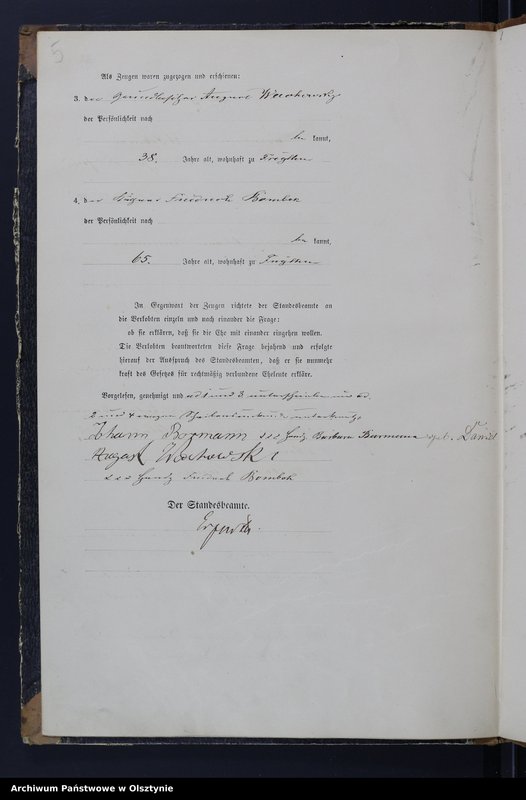 5
Als Zeugen waren zugezogen und erschienen:
3. der Grundbesitzer August
der Persönlichkeit nach
be kannt,
38. Jahre alt, wohnhaft zu
4. der Friedrich Bombek
der Persönlichkeit nach
be kannt,
65. Jahre alt, wohnhaft zu
In Gegenwart der Zeugen richtete der Standesbeamte an
die Verlobten einzeln und nach einander die Frage:
ob sie erklären, daß sie die Ehe mit einander eingehen wollen.
Die Verlobten beantworteten diese Frage bejahend und erfolgte
hierauf der Ausspruch des Standesbeamten, daß er sie nunmehr
kraft des Gesetzes für rechtmäßig verbundene Eheleute erkläre.
Vorgelesen, genehmigt und ad 1 und 3 unterschrieben und ad
2 und 4 wegen
Johann xxx Handz Barbara geb.
August
xxx Handz Friedrich Bombek
Der Standesbeamte.
Archiwum Państwowe w Olsztynie